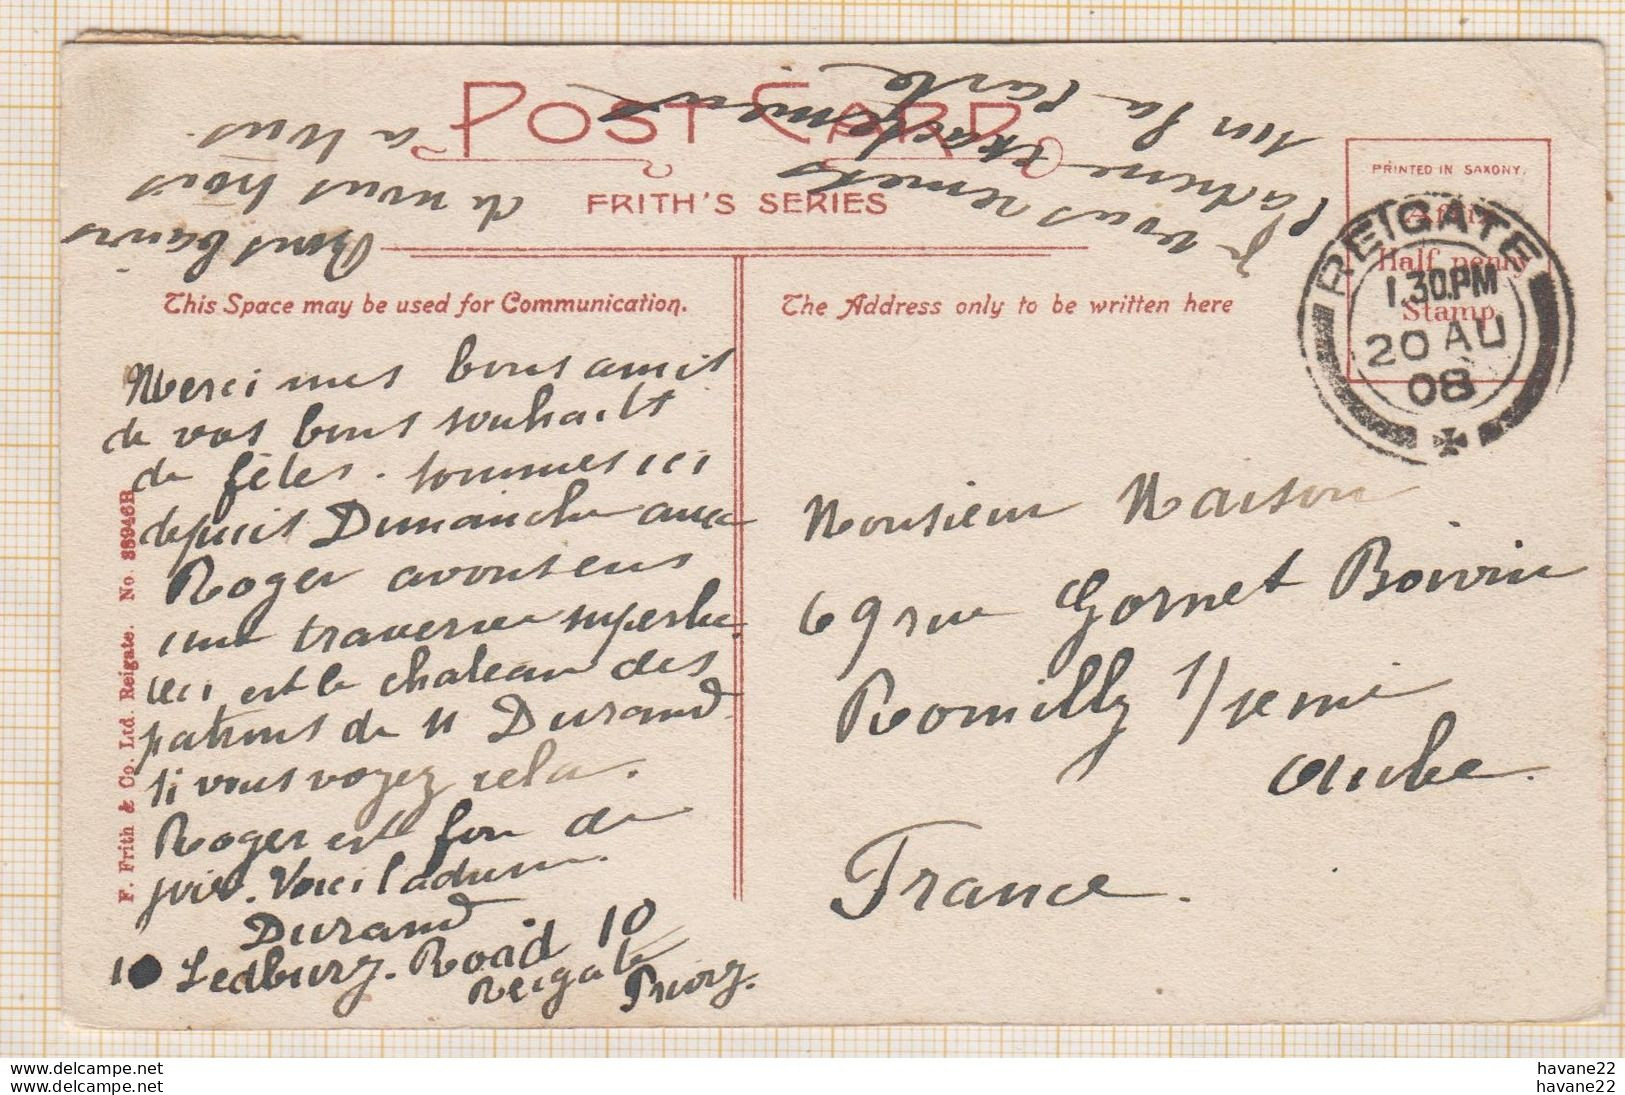 POST CARD
FRITH'S SERIES
This Space may be used for Communication.
The Address only to be written here
PRINTED IN SAXONY.
Affix
Half penny
Stamp
REIGATE
1.30.PM
20 AU
08
F. Frith & Co. Ltd. Reigate. No.
Merci mes bons amis
de vos bons souhaits
de fêtes. sommes ici
depuis Dimanche avec
Roger avons eus
une traversee superbe
ceci est le chateau des
patrons de M Durand
si vous voyez cela.
Roger est fou de
joie. Voici l'adresse
Durand
10 Ledbury. Road 10
Reigate
Priory.
Bons baisers
de nous trois
a vous.
Je vous remets
l'adresse exactement
sur la carte
Monsieur Maison
69 rue Gornet Boivin
Romilly s/seine
Aube
France.
havane22
havane22